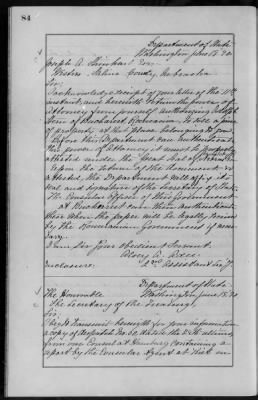 84
Department of State
Washington, June 13, 90
Joseph A.
Western, Saline County, Nebraska
Sir:
I acknowledge receipt of your letter of the
instant, and herewith return the power of
attorney from yourself authorizing
of Bucharest Roumania, to sell a piece
of property at that place belonging to you.
Before this Department can authenticate
this power of attorney it must be properly
attested under the great Seal of
Upon the return of the document so
attested, the Department will affix its
seal and signature of the Secretary of State.
The Consular Officer of this Government
at Bucharest can then authenticate
when the paper will be legally received
by the Roumanian Government if neces-
sary.
I am Sir Your obedient Servant.
Alvey A. Adee
2nd Assistant Sec'y
Enclosure.
Department of State
Washington, June 13, 90
The Honorable
The Secretary of the Treasury.
Sir:
I beg to transmit herewith for your information
a copy of despatch No.
from our Consul at Hamburg containing a
report by the Consular Agent at that